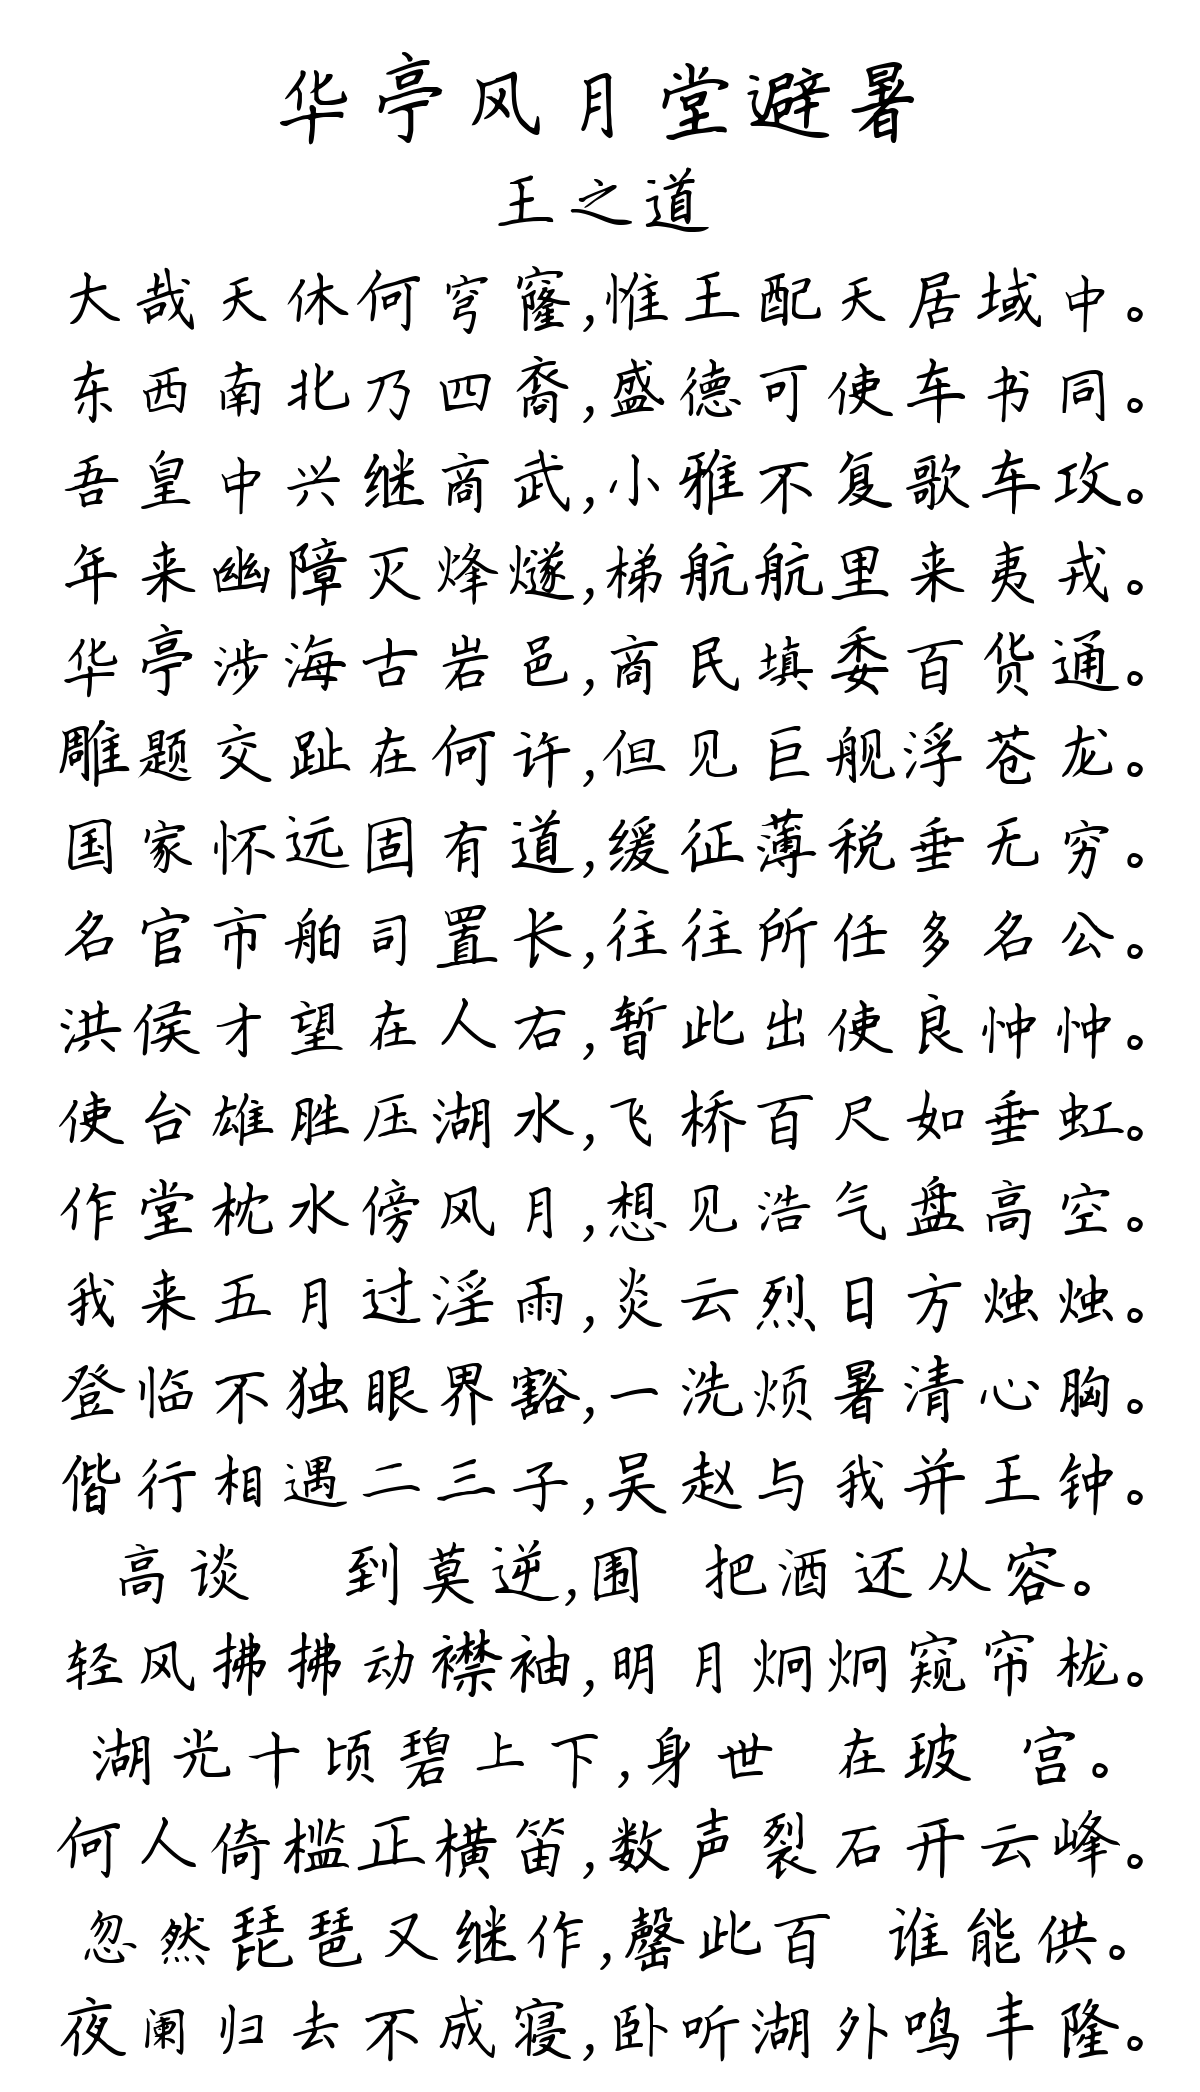 华亭风月堂避暑
王之道
大哉天休何穹窿,惟王配天居域中。
东西南北乃四裔,盛德可使车书同。
吾皇中兴继商武,小雅不复歌车攻。
年来幽障灭烽燧,梯航航里来夷戎。
华亭涉海古岩邑,商民填委百货通。
雕题交趾在何许,但见巨舰浮苍龙。
国家怀远固有道,缓征薄税垂无穷。
名官市舶司置长,往往所任多名公。
洪侯才望在人右,暂此出使良忡忡。
使台雄胜压湖水,飞桥百尺如垂虹。
作堂枕水傍风月,想见浩气盘高空。
我来五月过淫雨,炎云烈日方烛烛。
登临不独眼界豁,一洗烦暑清心胸。
偕行相遇二三子,吴赵与我并王钟。
高谈 到莫逆,围 把酒还从容。
轻风拂拂动襟袖,明月炯炯窥帘栊。
湖光十顷碧上下,身世 在玻 宫。
何人倚槛正横笛,数声裂石开云峰。
忽然琵琶又继作,罄此百 谁能供。
夜阑归去不成寝,卧听湖外鸣丰隆。